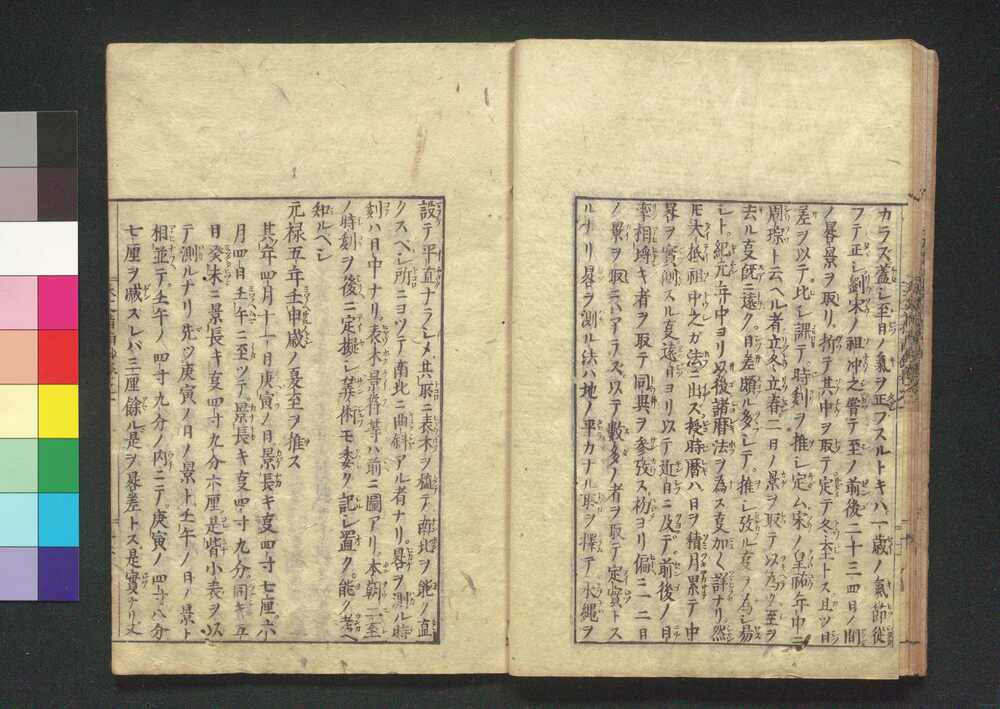 カラス蓋シ至日ノ氣ヲ正フスルトキハ一歳ノ氣節從
フテ正シ劉宋ノ祖冲之嘗テ至ノ前後二十三四日ノ間
ノ晷景ヲ取リ折テ其中ヲ取テ定テ冬至トス且ツ日
差ヲ以テ比シ課テ時刻ヲ推シ定ム宋ノ皇祐年中ニ
周琮ト云ヘル者立冬立春二日ノ景ヲ取テ以為ク至ヲ
去ル夏既ニ遠ク日差頗ル多シテ推シ攷ル夏ヲ為シ易
シト紀元ヨリ以後諸曆法ヲ為ス夏加〱詳ナリ然
𪜈大抵祖冲之ガ法ニ出ス授時曆ハ日ヲ積月累テ中
晷ヲ實測スル夏遠日ヨリ以テ近日ニ及デ前後ノ日
率相埒キ者ヲ取テ同異ヲ参攷ス初ヨリ偏ニ一二日
ノ景ヲ取ニハアラス以テ數多ノ者ヲ取テ定實トス
ルナリ晷ヲ測ル法ハ地ノ平カナル所ヲ擇テ水縄ヲ
設テ平直ナラシメ其所ニ表木ヲ植テ南北ヲ能ノ直
クスベシ所ニヨツテ南北ニ曲斜アル者ナリ晷ヲ測ル時
刻ハ日中ナリ表木景符等ハ前ニ圖アリ本朝二至
ノ時刻ヲ後ニ定擬シ算術モ委ク記シ置ク能ク考ヘ
知ルベシ
元禄五年壬申歳ノ夏至ヲ推ス
其年四月十一日庚寅ノ日景長キ夏四寸七厘六
月四日壬午ニ至ツテ景長キ夏四寸九分同キ五
日癸未ニ景長キ夏四寸九分六厘是皆小表ヲ以
テ測ルナリ先ツ庚寅ノ日ノ景ト壬午ノ日ノ景ト
相並テ壬午ノ四寸九分ノ内ニテ庚寅ノ四寸八分
七厘ヲ減スレバ三厘餘ル是ヲ晷差トス是實ナリ又